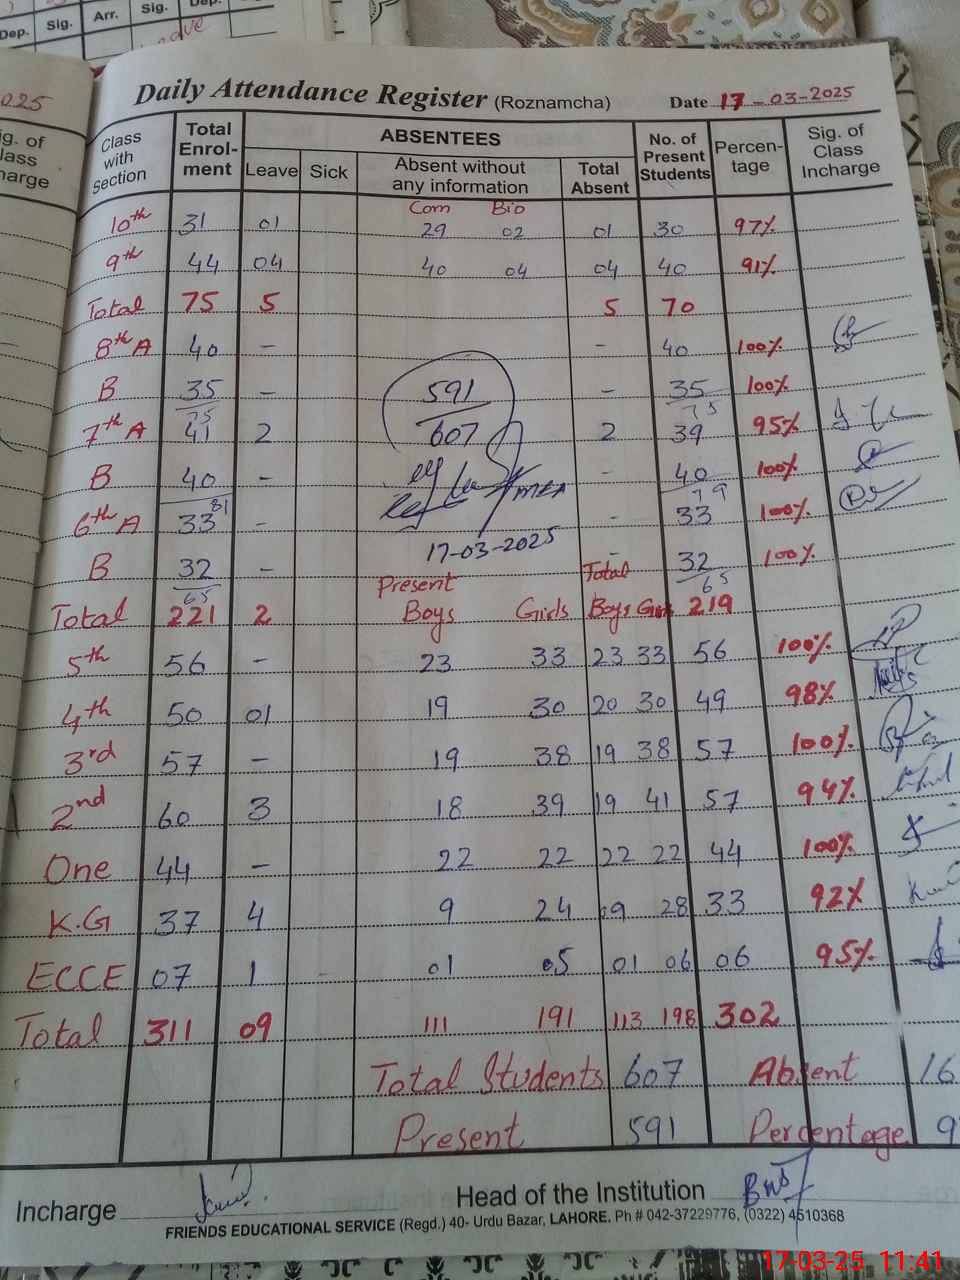 Dep. Sig. Arr. Sig. Dep.
025
ig. of
lass
harge
Daily Attendance Register (Roznamcha) Date 17-03-2025
Class with Section Total Enrolment ABSENTEES No. of Present Students Percentage Sig. of Class Incharge
Leave Sick Absent without any information Total Absent
Com Bio
10th 31 01 29 02 01 30 97%
9th 44 04 40 04 04 40 91%
Total 75 5 5 70
8th A 40 - - 40 100%
B 35 - - 35 100%
75 75
7th A 41 2 2 39 95%
B 40 - - 40 100%
81 79
6th A 33 - - 33 100%
B 32 - - 32 100%
65 65
591
607
MEA
17-03-2025
Present Total
Total 221 2 Boys Girls Boys Girls 219
5th 56 - 23 33 23 33 56 100%
4th 50 01 19 30 20 30 49 98%
3rd 57 - 19 38 19 38 57 100%
2nd 60 3 18 39 19 41 57 94%
One 44 - 22 22 22 22 44 100%
K.G 37 4 9 24 09 28 33 92%
ECCE 07 1 01 05 01 06 06 95%
Total 311 09 111 191 113 198 302
Total Students 607 Absent 16
Present 591 Percentage 9
Incharge Head of the Institution
FRIENDS EDUCATIONAL SERVICE (Regd.) 40- Urdu Bazar, LAHORE. Ph # 042-37229776, (0322) 4510368
17-03-25 11:41